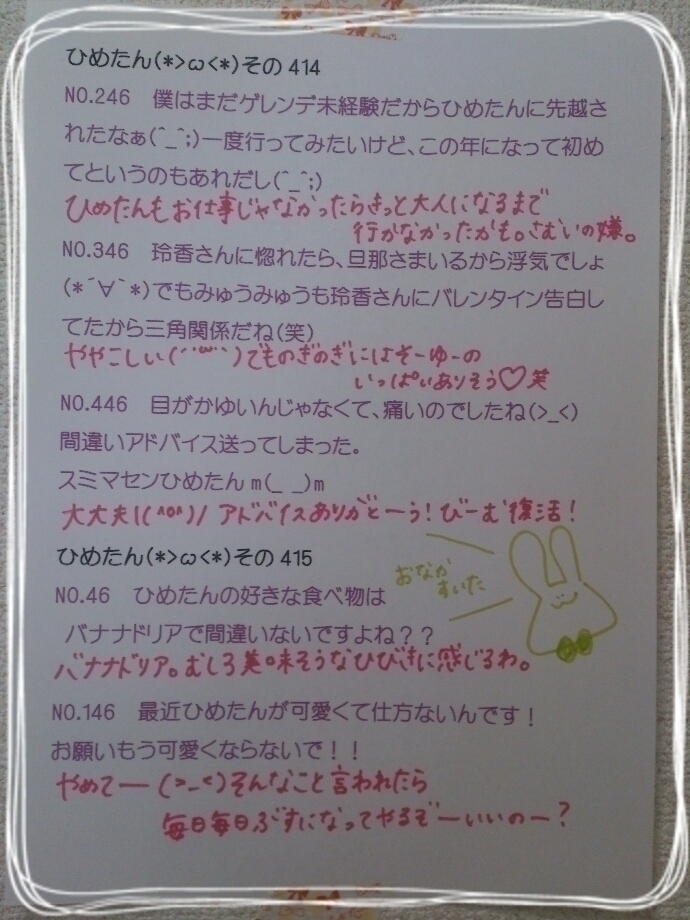 ひめたん(*>ω<*)その414
NO.246　僕はまだゲレンデ未経験だからひめたんに先越さ
れたなぁ(^_^;)一度行ってみたいけど、この年になって初め
てというのもあれだし(^_^;)
ひめたんもお仕事じゃなかったらきっと大人になるまで
行かなかったかも。さむいの嫌。
NO.346　玲香さんに惚れたら、旦那さまいるから浮気でしょ
(*´∀｀*)でもみゅうみゅうも玲香さんにバレンタイン告白し
てたから三角関係だね(笑)
ややこしい(´˙꒳˙｀)でものぎのぎにはそーゆーの
いっぱいありそう♡笑
NO.446　目がかゆいんじゃなくて、痛いのでしたね(>_<)
間違いアドバイス送ってしまった。
スミマセンひめたんm(_ _)m
大丈夫!(^o^)/ アドバイスありがとーう!びーむ復活!
ひめたん(*>ω<*)その415
おなか
すいた
NO.46　ひめたんの好きな食べ物は
バナナドリアで間違いないですよね??
バナナドリア。むしろ美味そうなひびきに感じるわ。
NO.146　最近ひめたんが可愛くて仕方ないんです!
お願いもう可愛くならないで!!
やめてー(>_<)そんなこと言われたら
毎日毎日ぶすになってやるぞーいいのー?